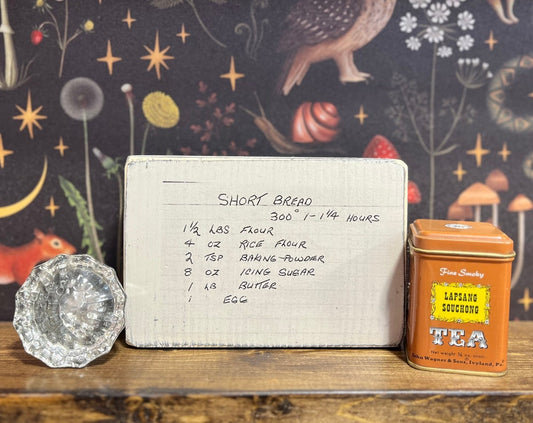 SHORT BREAD
300° 1-1¼ HOURS
1½ LBS FLOUR
4 OZ RICE FLOUR
2 TSP BAKING-POWDER
8 OZ ICING SUGAR
1 LB BUTTER
1 EGG
Fine Smoky
LAPSANG
SOUCHONG
TEA
John Wagner & Sons, Ivyland, Pa.